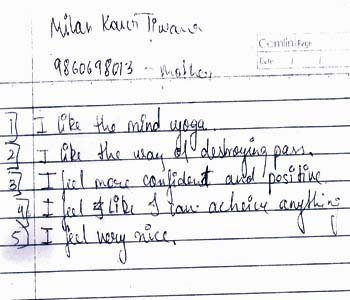 Milan Kaur Tiwana
Comlin Page
9860698013 - mother
Date / /
1] I like the mind yoga.
2] I like the way of destroying pass.
3] I feel more confident and positive
4] I feel I like I can acheive anything
5] I feel very nice.